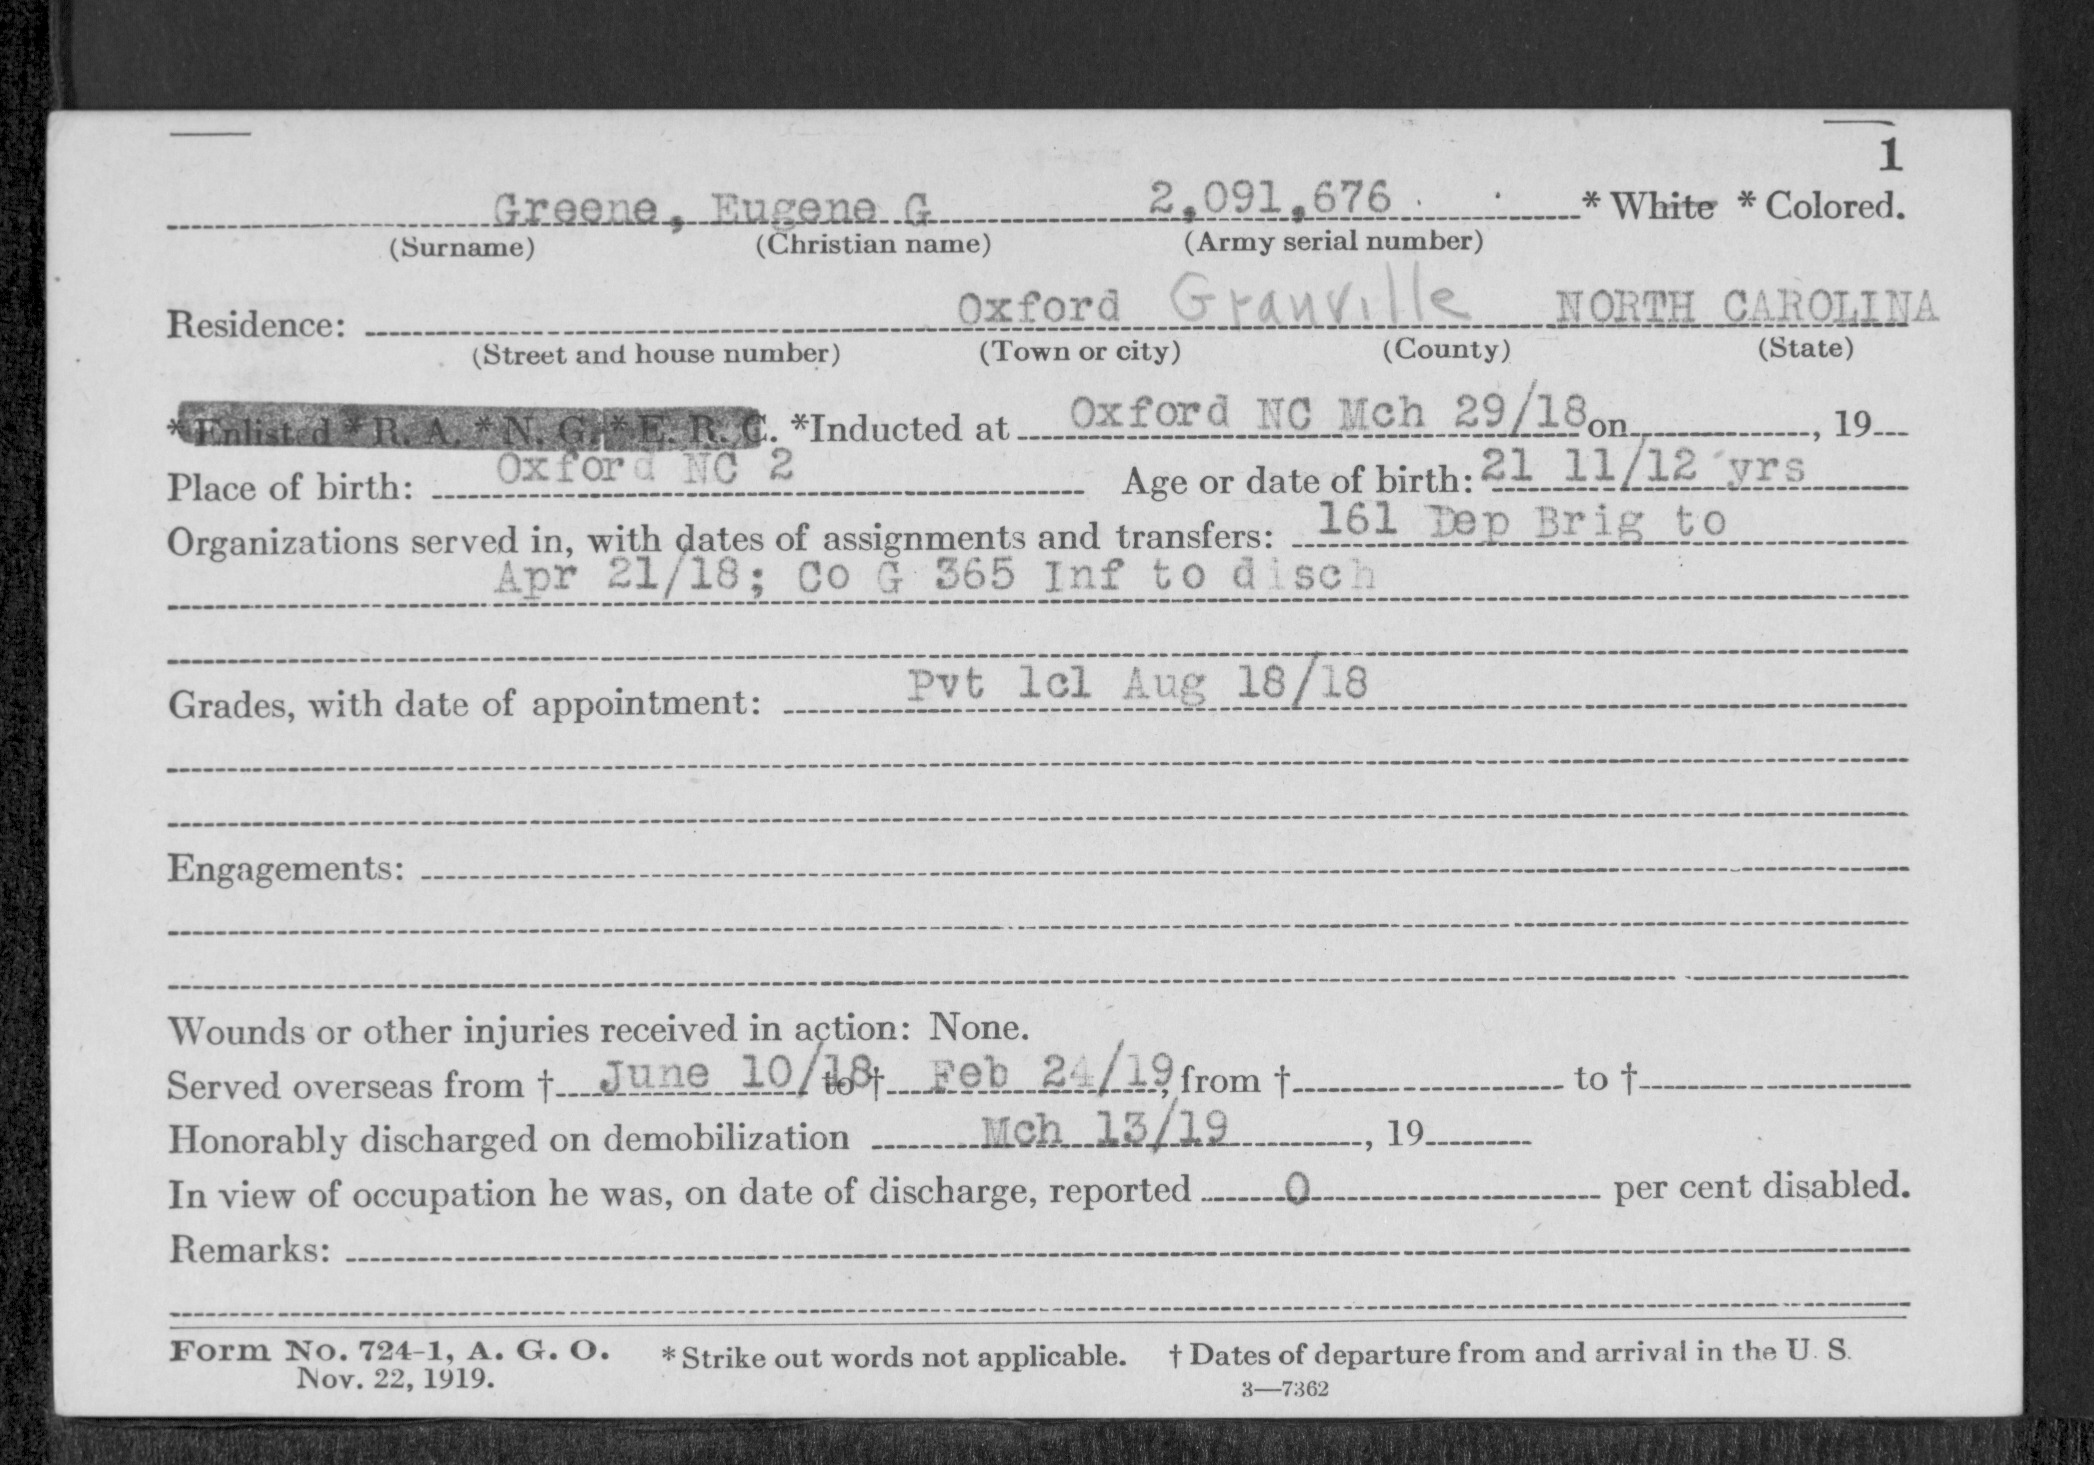 1
Greene, Eugene G 2,091,676 * White * Colored.
(Surname) (Christian name) (Army serial number)
Residence: Oxford Granville NORTH CAROLINA
(Street and house number) (Town or city) (County) (State)
*Enlisted * R. A. * N. G. * E. R. C. *Inducted at Oxford NC Mch 29/18 on , 19
Place of birth: Oxford NC 2 Age or date of birth: 21 11/12 yrs
Organizations served in, with dates of assignments and transfers: 161 Dep Brig to
Apr 21/18; Co G 365 Inf to disch
Grades, with date of appointment: Pvt 1cl Aug 18/18
Engagements:
Wounds or other injuries received in action: None.
Served overseas from † June 10/18 to † Feb 24/19, from † to †
Honorably discharged on demobilization Mch 13/19 , 19
In view of occupation he was, on date of discharge, reported 0 per cent disabled.
Remarks:
Form No. 724-1, A. G. O. * Strike out words not applicable. † Dates of departure from and arrival in the U. S.
Nov. 22, 1919. 3—7362